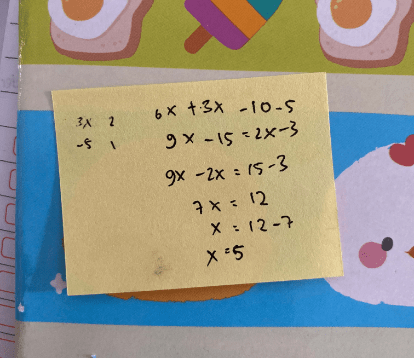 3x 2
-5 1
6x +3x -10-5
9x -15 = 2x-3
9x -2x = 15-3
7x = 12
x = 12-7
x =5